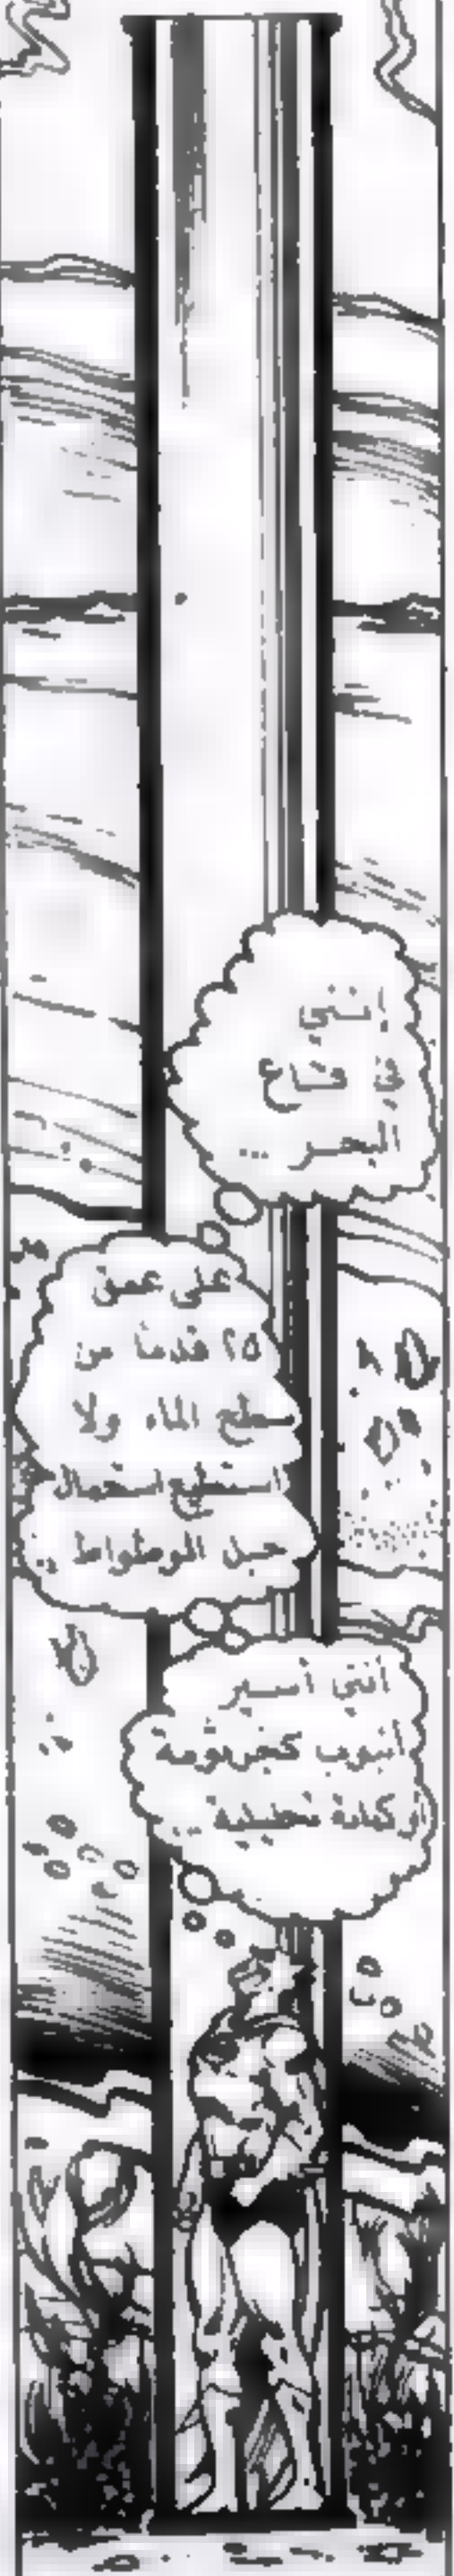 إنني
في قاع
البحر ...
على عمق
٢٥ قدماً من
سطح الماء ولا
استطيع استعمال
حبل الوطواط ..
انني أسير
أنبوب كجرثومة
او كمادة تحليلية ..